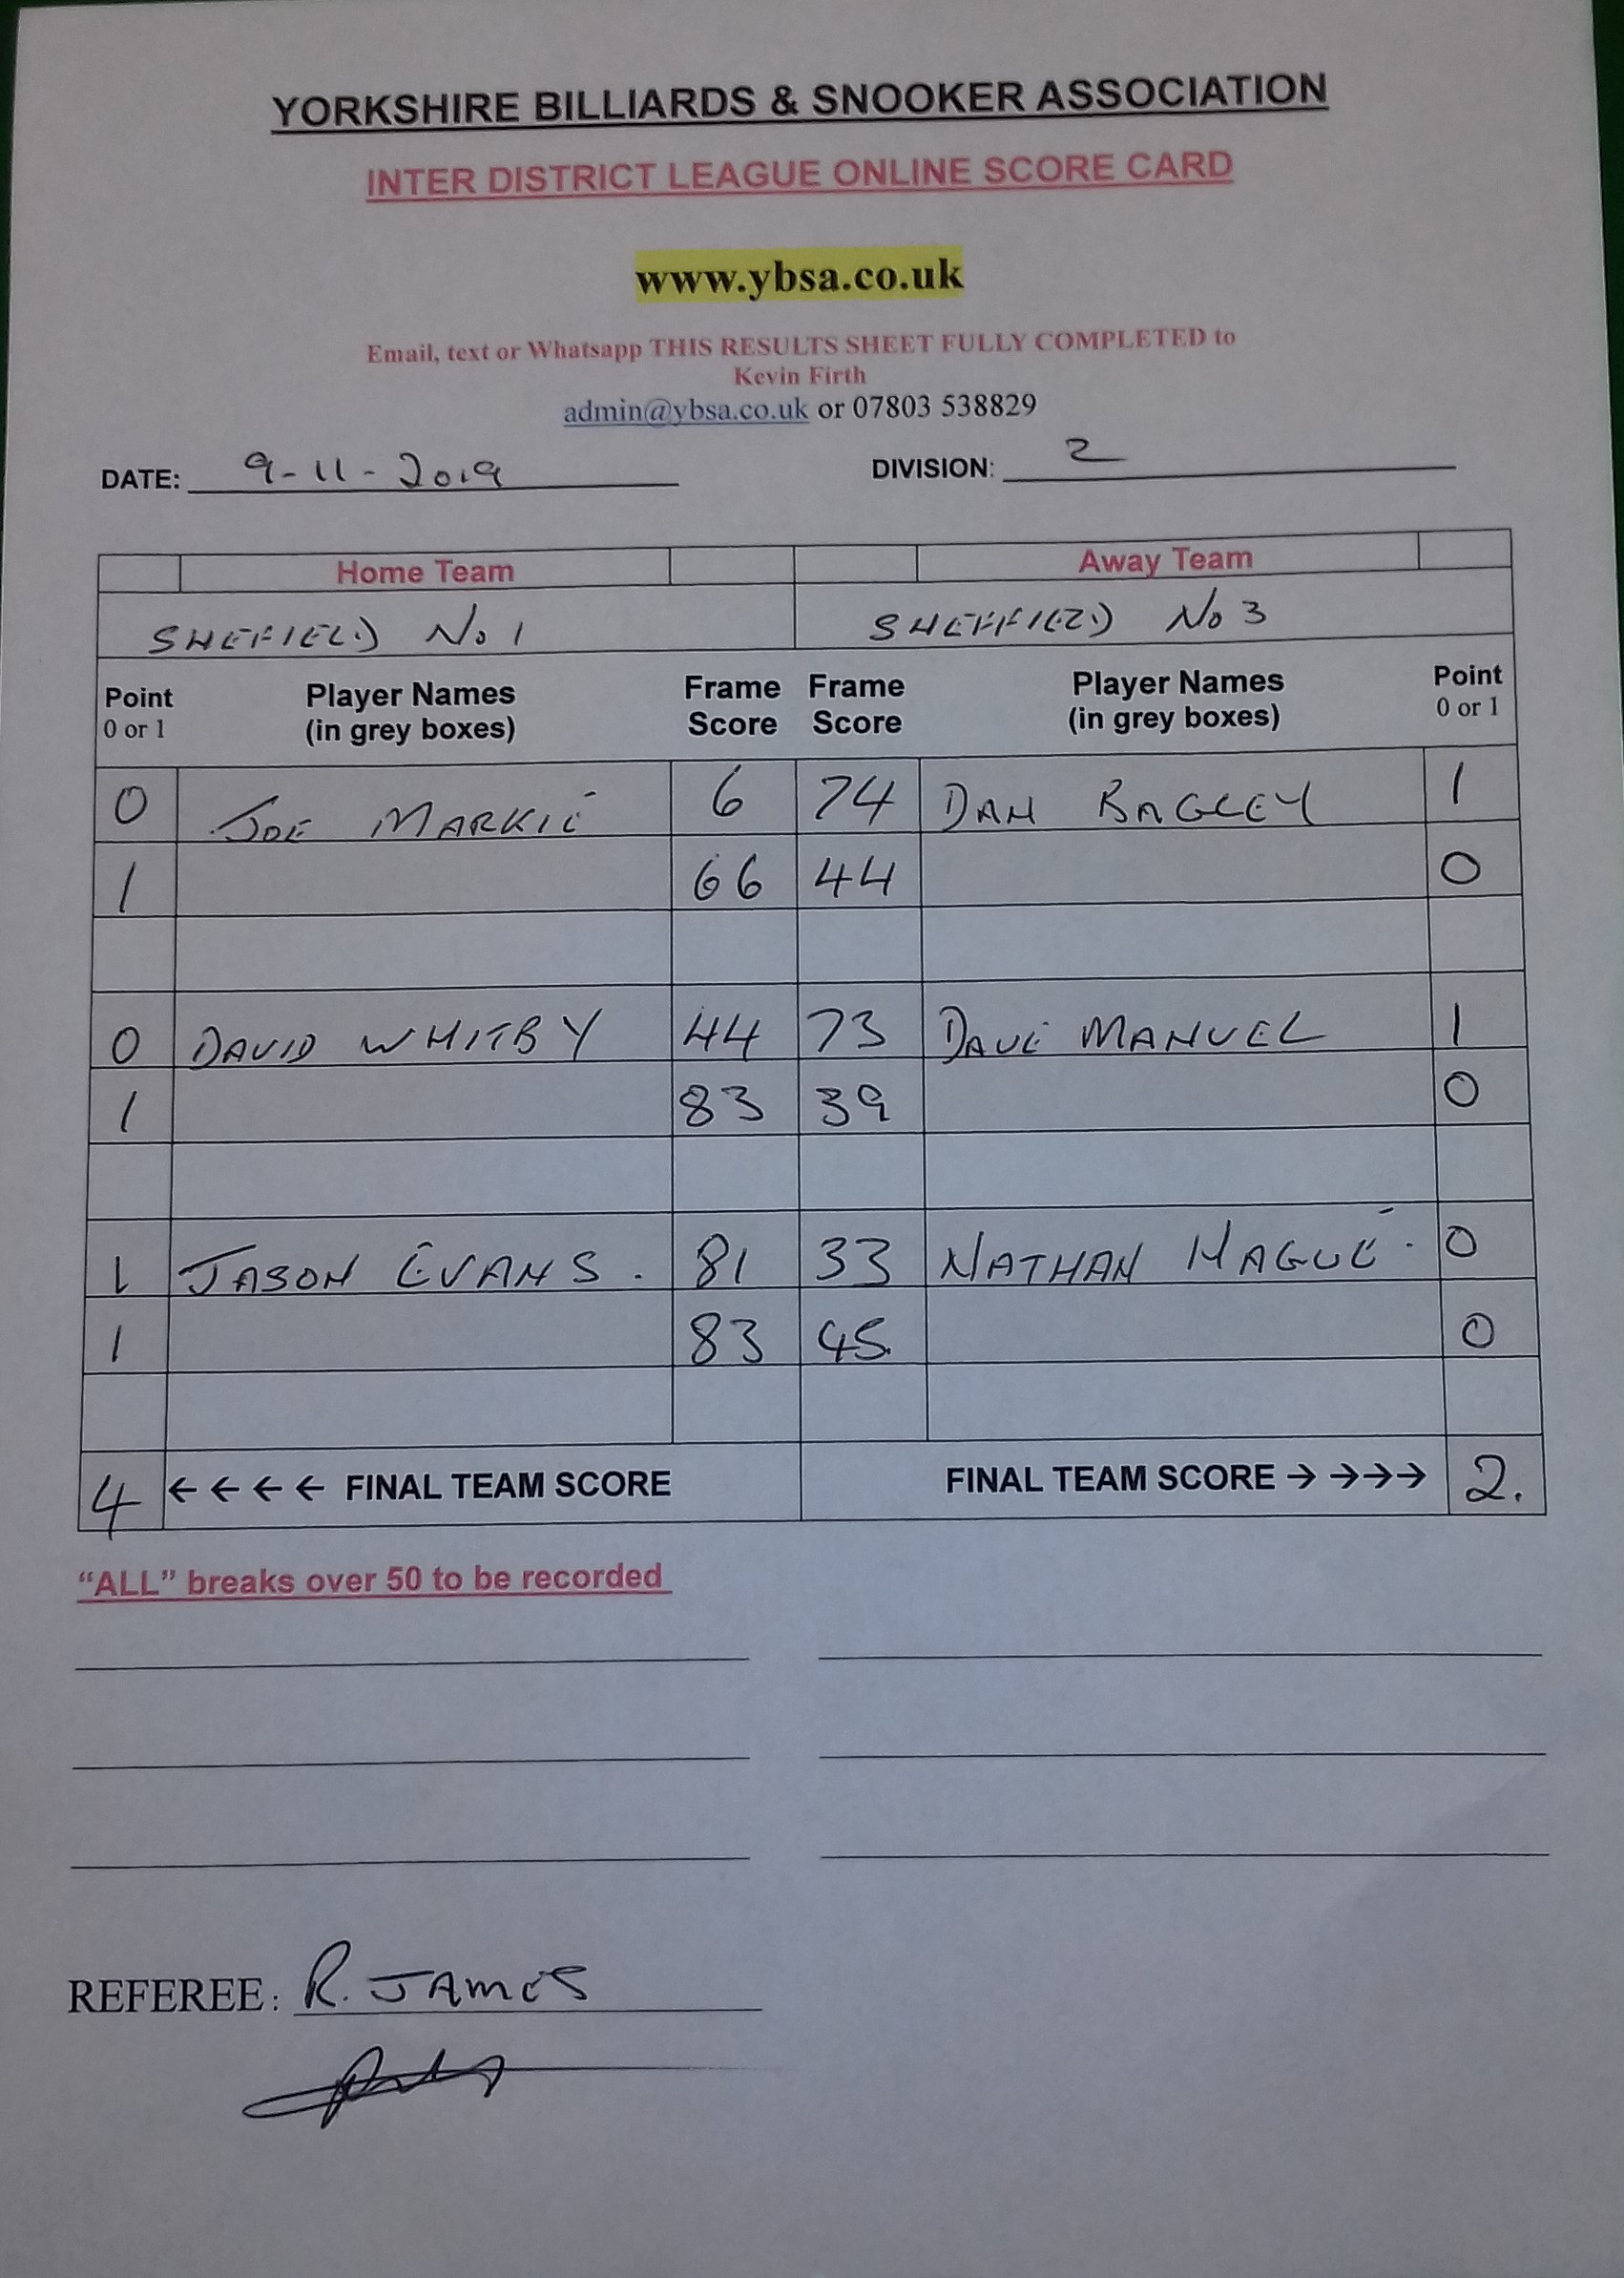 YORKSHIRE BILLIARDS & SNOOKER ASSOCIATION
INTER DISTRICT LEAGUE ONLINE SCORE CARD
www.ybsa.co.uk
Email, text or Whatsapp THIS RESULTS SHEET FULLY COMPLETED to
Kevin Firth
admin@ybsa.co.uk or 07803 538829
DATE: 9-11-2019 DIVISION: 2
Home Team Away Team
SHEFIELD No 1 SHEFFIELD No 3
Point Player Names Frame Frame Player Names Point
0 or 1 (in grey boxes) Score Score (in grey boxes) 0 or 1
0 JOE MARKIE 6 74 DAN BAGLEY 1
1 66 44 0
0 DAVID WHITBY 44 73 DAVE MANUEL 1
1 83 39 0
1 JASON EVANS. 81 33 NATHAN HAGUE. 0
1 83 45. 0
4 ← ← ← ← FINAL TEAM SCORE FINAL TEAM SCORE → →→→ 2.
“ALL” breaks over 50 to be recorded
REFEREE: R. JAMES